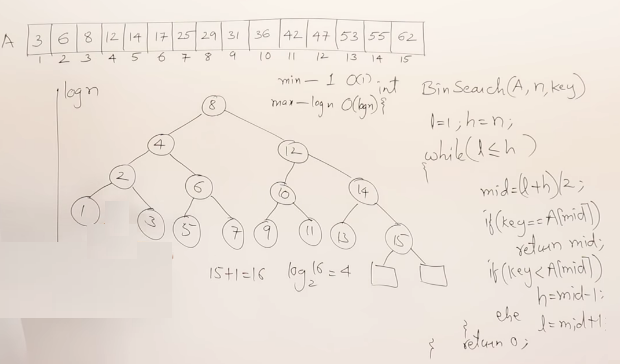 A 3 6 8 12 14 17 25 29 31 36 42 47 53 55 62
1 2 3 4 5 6 7 8 9 10 11 12 13 14 15
logn
min — 1 O(1)
max — logn O(logn)
8
4 12
2 6 10 14
1 3 5 7 9 11 13 15
15+1=16 log₂16 = 4
int BinSearch(A, n, key)
{
l=1; h=n;
while(l≤h)
{
mid=(l+h)/2;
if(key==A[mid])
return mid;
if(key<A[mid])
h=mid-1;
else l=mid+1
}
return 0;
}